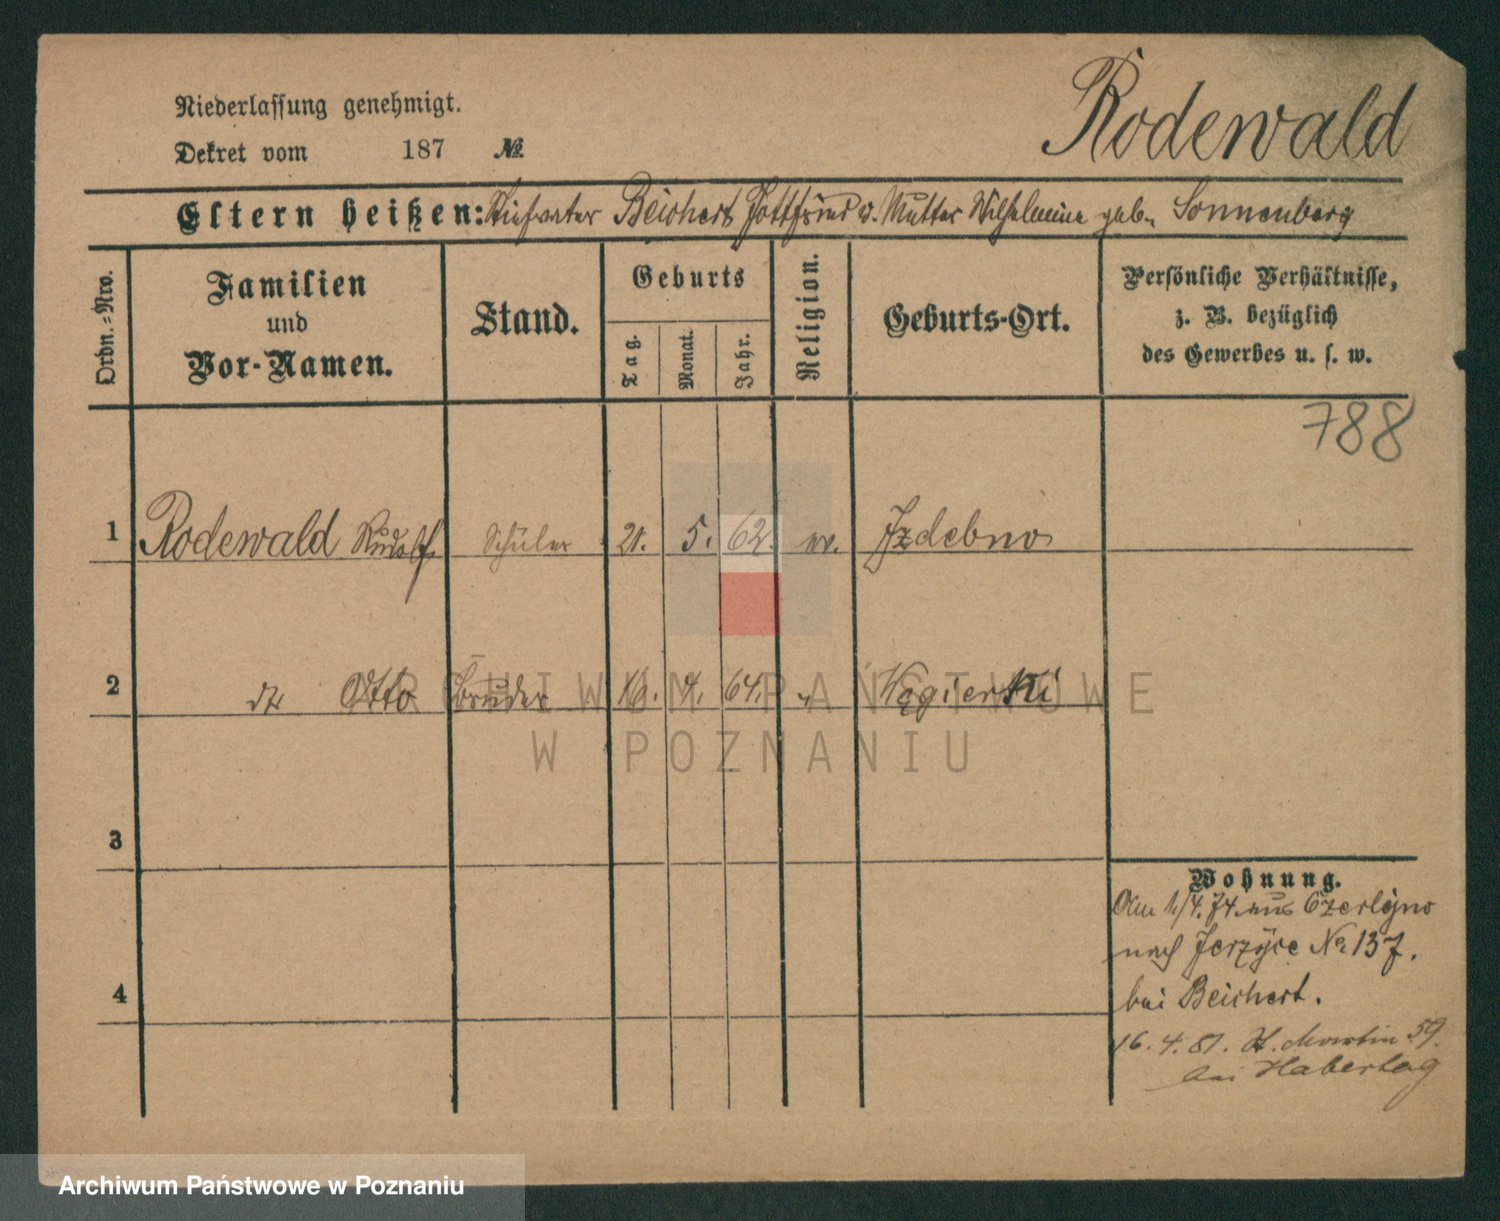 Rodewald
Niederlassung genehmigt.
Dekret vom 187 №
Eltern heißen: Stiefvater Beichert Gottfried u. Mutter Wilhelmine geb. Sonnenberg
Ordn.-Nro.
Familien
und
Vor-Namen.
Stand.
Geburts
Tag.
Monat.
Jahr.
Religion.
Geburts-Ort.
Persönliche Verhältnisse,
z. B. bezüglich
des Gewerbes u. s. w.
788
1 Rodewald Rudolf Schüler 21. 5. 62. ev. Izdebno
2 dt Otto Bruder 16. 4. 64. " Węgierski
3
4
Wohnung.
Am 1./4. 74 aus Czerlejno
nach Jerzyce No 137.
bei Beichert.
16. 4. 81. St. Martin 59.
bei Habertag
ARCHIWUM PAŃSTWOWE
W POZNANIU
Archiwum Państwowe w Poznaniu